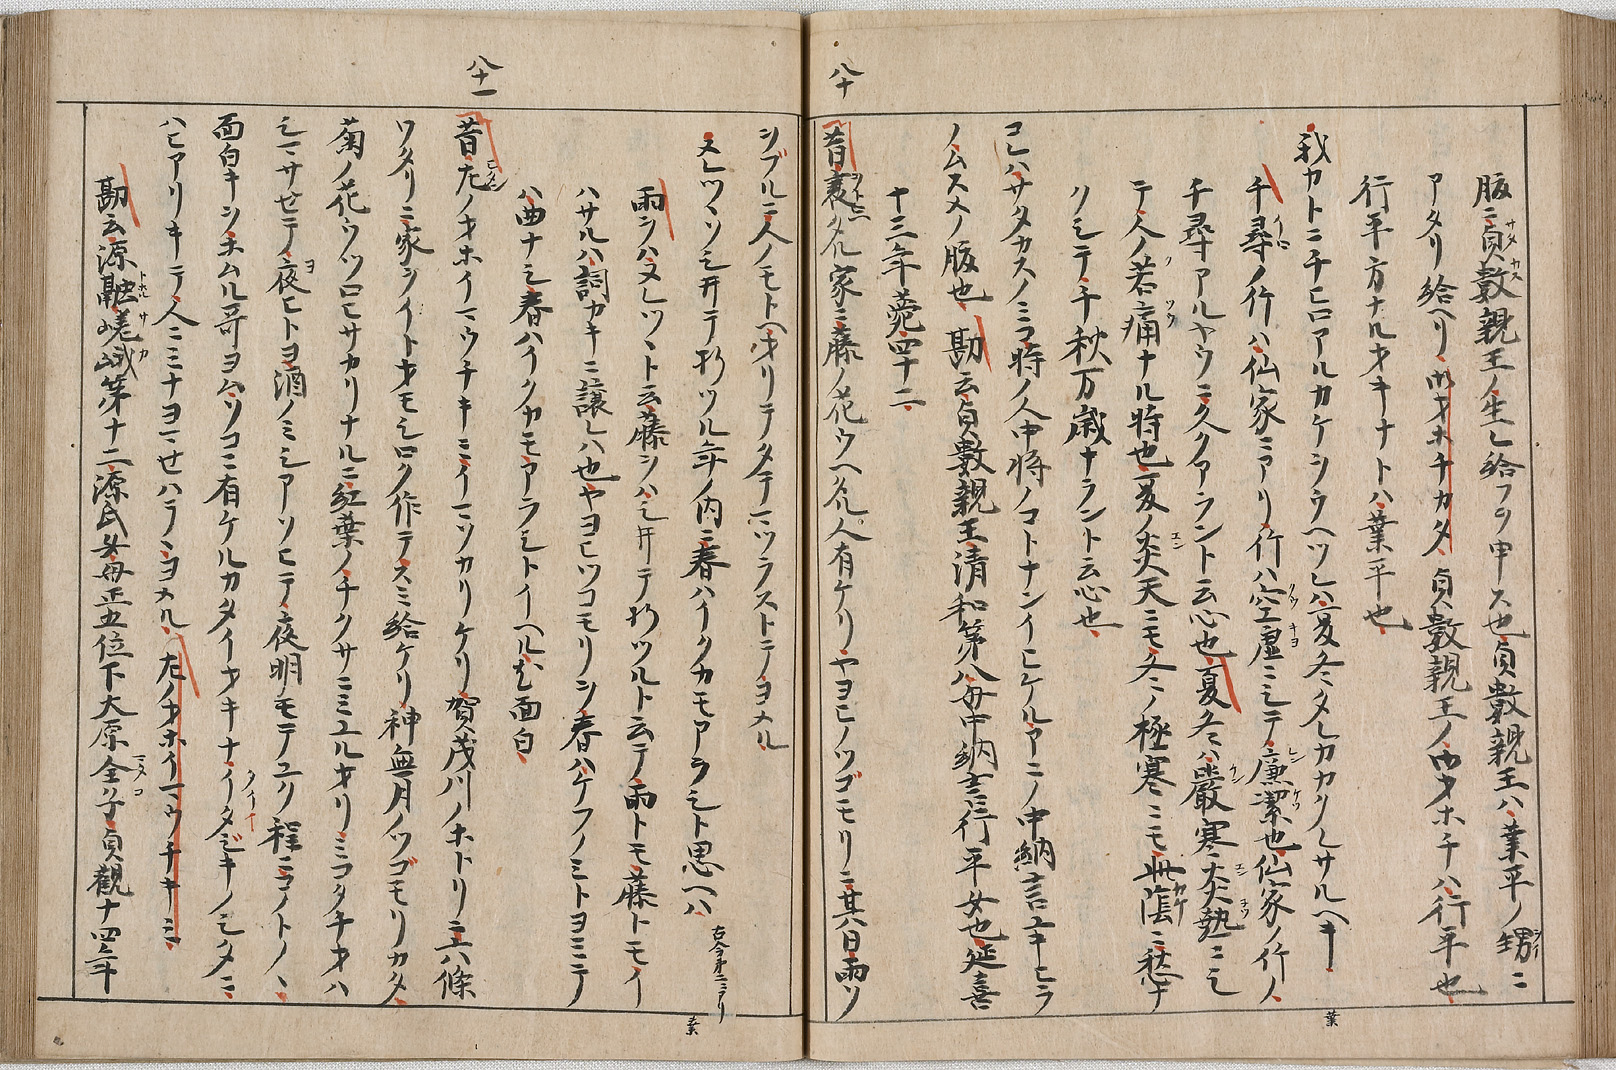 八十
腹ニ貞數親王ノ生レ給フヲ申ス也貞數親王ハ業平ノ甥ニ
アタリ給ヘリ御オホチカタ貞數親王ノ御オホチハ行平也
行平方ナルオキナトハ業平也
我カトニチヒロアルカケシウヘツレハ夏冬タレカカクレサルヘキ
千尋ノ竹ハ仙家ニアリ竹ハ空虚ニシテ廉潔也仙家ノ竹ノ
千尋アルヤウニ久クアラント云心也夏冬ハ嚴寒炎熱ニシ
テ人ノ苦痛ナル時也夏ノ炎天ニモ冬ノ極寒ニモ此蔭ニ愁ナ
クシテ千秋万歳ナラント云心也
コレハサタカスノミコ時ノ人中将ノコトナンイヒケルアニノ中納言ユキヒラ
ノムスメノ腹也勘云貞數親王清和第八母中納言行平女也延喜
十三年薨四十二
昔衰タル家ニ藤ノ花ウヘタル人有ケリヤヨヒノツゴモリニ其日雨ソ
葉
八十一
シブルニ人ノモトヘオリテタテマツラストテヨメル
ヌレツヽソシヰテ折ツル年ノ内ニ春ハイクカモアラシト思ヘハ
古今第二ニアリ
雨シハヌレツヽト云藤シハシヰテ折ツルト云テ雨トモ藤トモイ
ハサルハ詞カキニ譲レハ也ヤヨヒツコモリシ春ハケフノミトヨミテ
ハ曲ナシ春ハイクカモアラシトイヘル尤面白
昔左ノオホイマウチキミイマソカリケリ賀茂川ノホトリニ六條
ワタリニ家シイトオモシロク作テスミ給ケリ神無月ノツゴモリカタ
菊ノ花ウツロヒサカリナルニ紅葉ノチクサニミユルオリミコタチオハ
シマサセテ夜ヒトヨ酒ノミシアソヒテ夜明モテユク程ニコノトノヽ
面白キシホムル哥ヨムソコニ有ケルカタイオキナイタジキノシタニ
ハヒアリキテ人ニミナヨマセハテヽヨメル左ノオホイマウチキミ
勘云源融嵯峨第十二源氏母正五位下大原全子貞觀十四年
葉